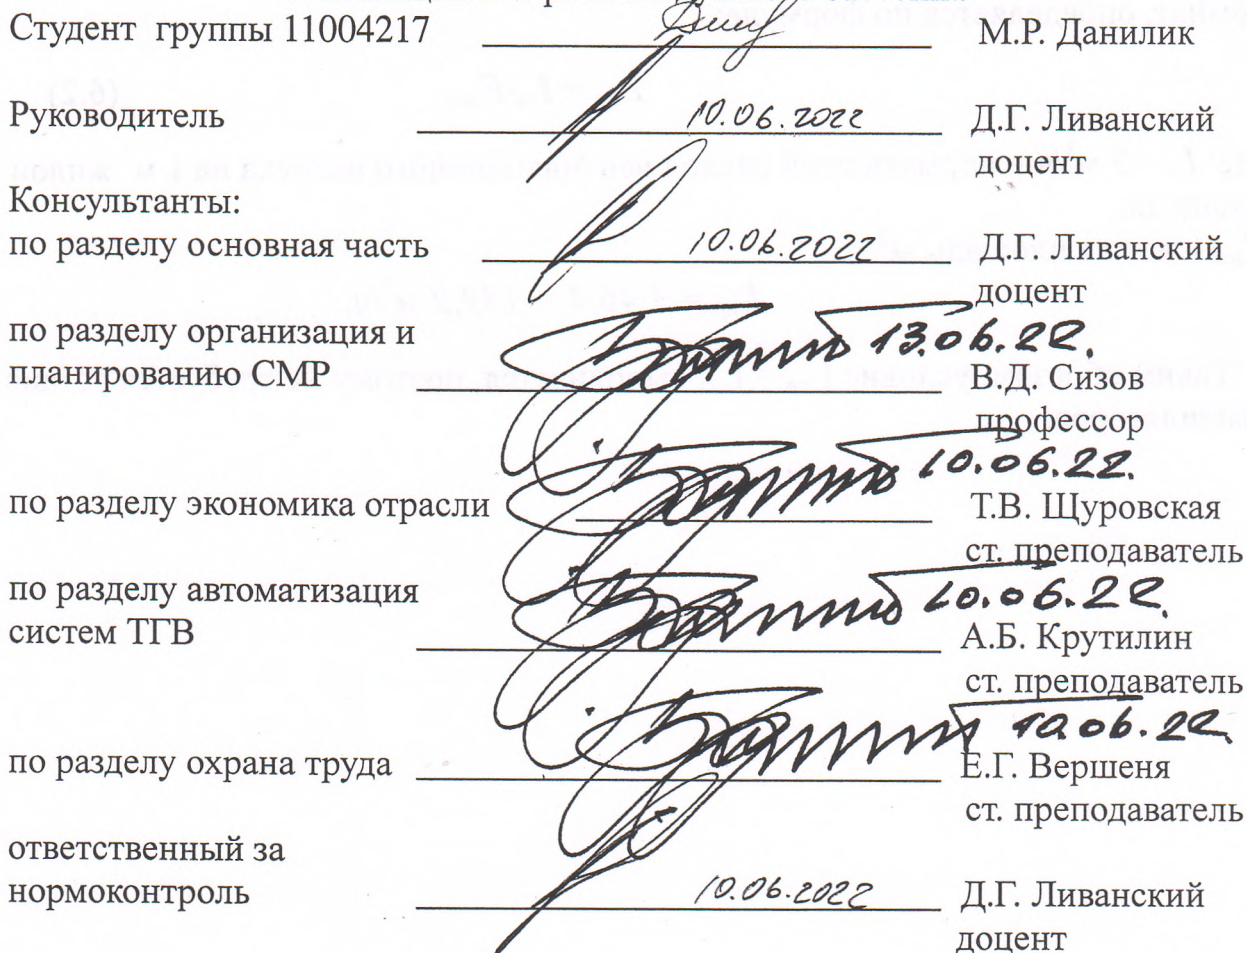 Студент группы 11004217 М.Р. Данилик
Руководитель 10.06.2022 Д.Г. Ливанский
доцент
Консультанты:
по разделу основная часть 10.06.2022 Д.Г. Ливанский
доцент
по разделу организация и 13.06.22.
планированию СМР В.Д. Сизов
профессор
10.06.22.
по разделу экономика отрасли Т.В. Щуровская
ст. преподаватель
по разделу автоматизация 10.06.22
систем ТГВ А.Б. Крутилин
ст. преподаватель
10.06.22
по разделу охрана труда Е.Г. Вершеня
ст. преподаватель
ответственный за
нормоконтроль 10.06.2022 Д.Г. Ливанский
доцент